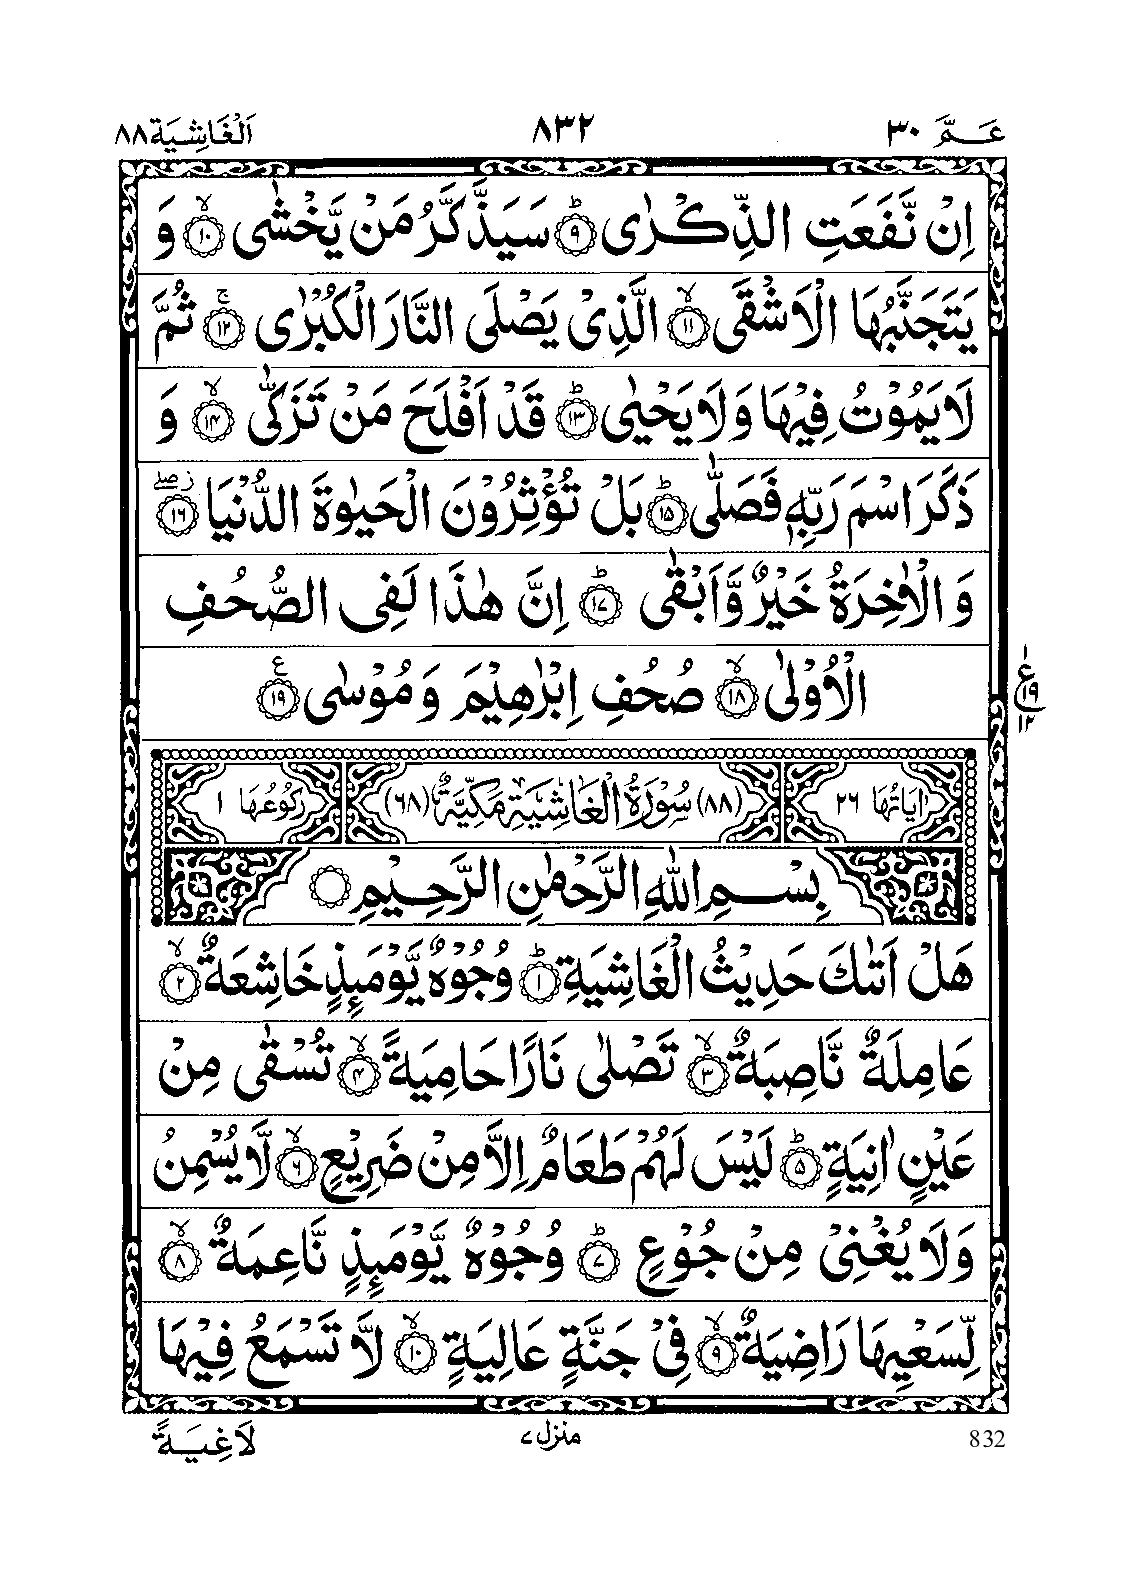 عَـمَّ ٣٠ ٨٣٢ اَلْغَاشِيَة ٨٨
اِنْ نَّفَعَتِ الذِّكْرٰى ؕ ۹ سَيَذَّكَّرُ مَنْ يَّخْشٰى ۙ ۱۰ وَ
يَتَجَنَّبُهَا الْاَشْقَى ۙ ۱۱ الَّذِىْ يَصْلَى النَّارَ الْكُبْرٰى ۚ ۱۲ ثُمَّ
لَا يَمُوْتُ فِيْهَا وَلَا يَحْيٰى ؕ ۱۳ قَدْ اَفْلَحَ مَنْ تَزَكّٰى ۙ ۱۴ وَ
ذَكَرَ اسْمَ رَبِّهٖ فَصَلّٰى ؕ ۱۵ بَلْ تُؤْثِرُوْنَ الْحَيٰوةَ الدُّنْيَا ز صلے ۱۶
وَ الْاٰخِرَةُ خَيْرٌ وَّاَبْقٰى ؕ ۱۷ اِنَّ هٰذَا لَفِى الصُّحُفِ
الْاُوْلٰى ۙ ۱۸ صُحُفِ اِبْرٰهِيْمَ وَمُوْسٰى ع ۱۹
١ ع ١٩ ١٢
اٰيَاتُهَا ٢٦ (٨٨) سُوْرَةُ الْغَاشِيَةِ مَكِّيَّةٌ (٦٨) رُكُوْعُهَا ١
بِسْـمِ اللّٰهِ الرَّحْمٰنِ الرَّحِـيْمِ
هَلْ اَتٰىكَ حَدِيْثُ الْغَاشِيَةِ ؕ ۱ وُجُوْهٌ يَّوْمَئِذٍ خَاشِعَةٌ ۙ ۲
عَامِلَةٌ نَّاصِبَةٌ ۙ ۳ تَصْلٰى نَارًا حَامِيَةً ۙ ۴ تُسْقٰى مِنْ
عَيْنٍ اٰنِيَةٍ ؕ ۵ لَيْسَ لَهُمْ طَعَامٌ اِلَّا مِنْ ضَرِيْعٍ ۙ ۶ لَّا يُسْمِنُ
وَلَا يُغْنِىْ مِنْ جُوْعٍ ؕ ۷ وُجُوْهٌ يَّوْمَئِذٍ نَّاعِمَةٌ ۙ ۸
لِّسَعْيِهَا رَاضِيَةٌ ۙ ۹ فِىْ جَنَّةٍ عَالِيَةٍ ۙ ۱۰ لَّا تَسْمَعُ فِيْهَا
832 منزل ۷ لَاغِيَـةً